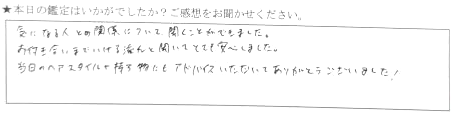 ★本日の鑑定はいかがでしたか?ご感想をお聞かせください。
気になる人との関係について、聞くことができました。
お付き合いまでいける流れと聞いてとても安心しました。
当日のヘアスタイルや持ち物にもアドバイスいただいてありがとうございました!